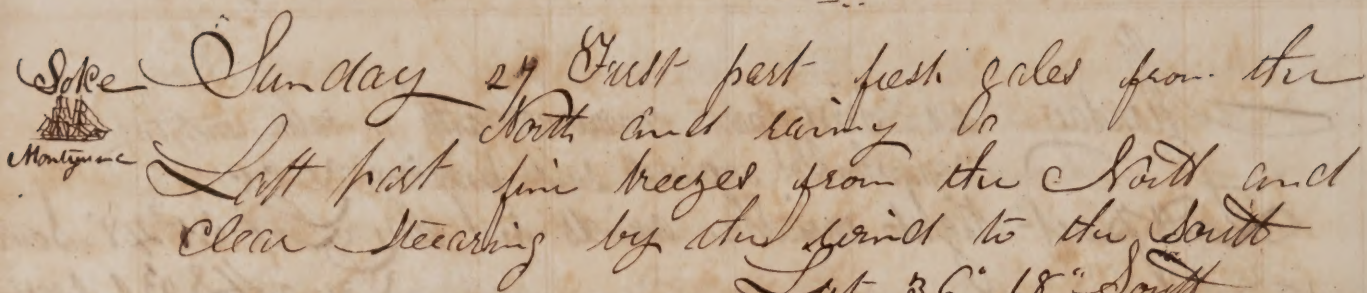 Soke
Montezuma
Sunday 27 First part fresh gales from the
North and rainy
Latt part fine breezes from the North and
Clear Stearing by the wind to the South
Lat 36° 18" South